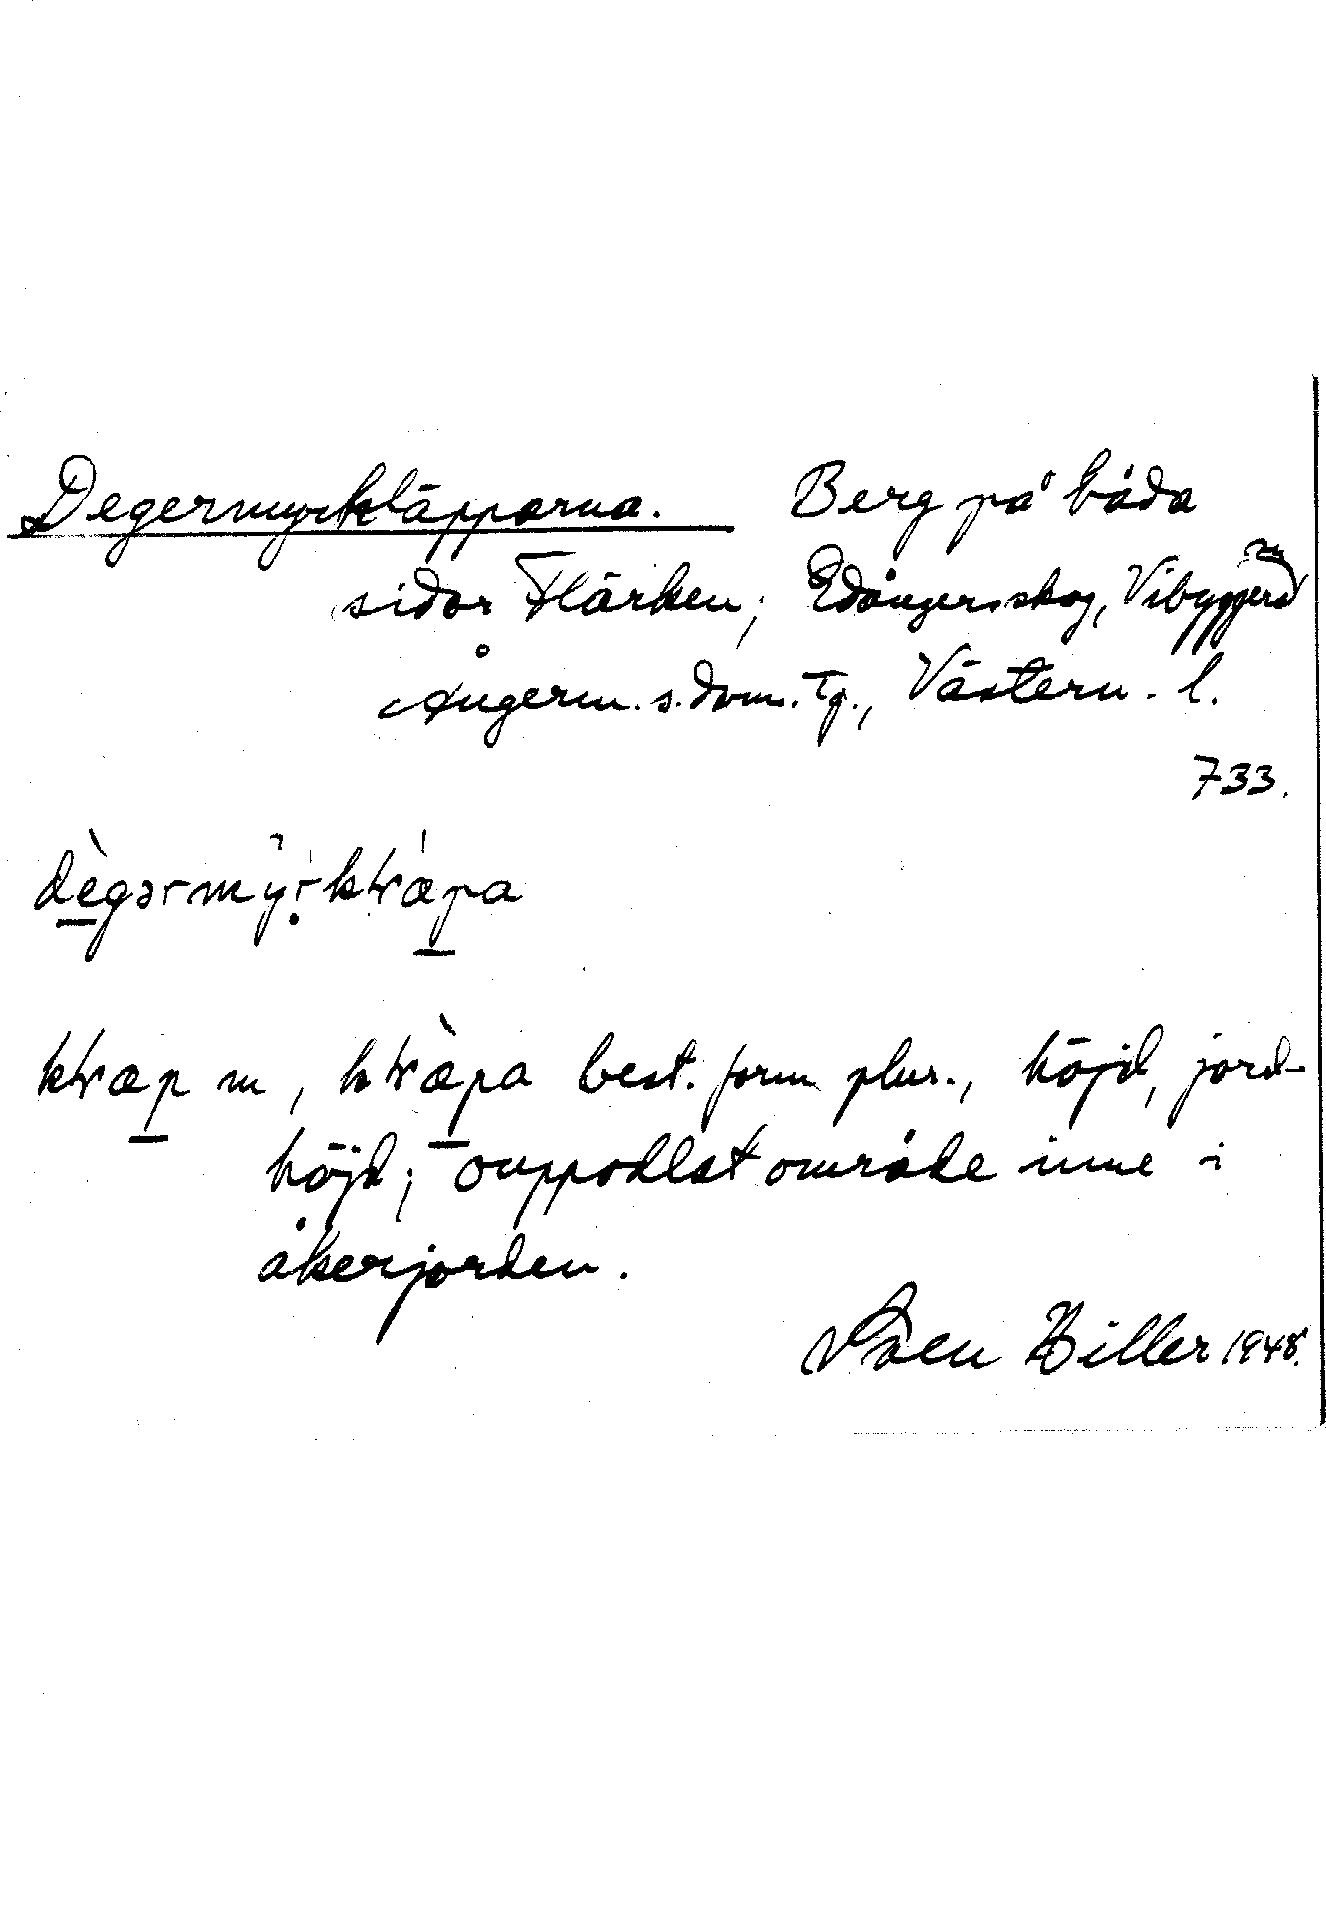 Degermyrkläpparna. Berg på båda
sidor Flärken; Edångersskog, Vibyggerå sn
Ångerm. s. dom. Tg., Västern. l.
733.
dègərmỳrkɫæpa
kɫæp m, kɫæ̀pa best. form plur., höjd, jord-
höjd; ouppodlat område inne i
åkerjorden.
Sven Hiller 1948.